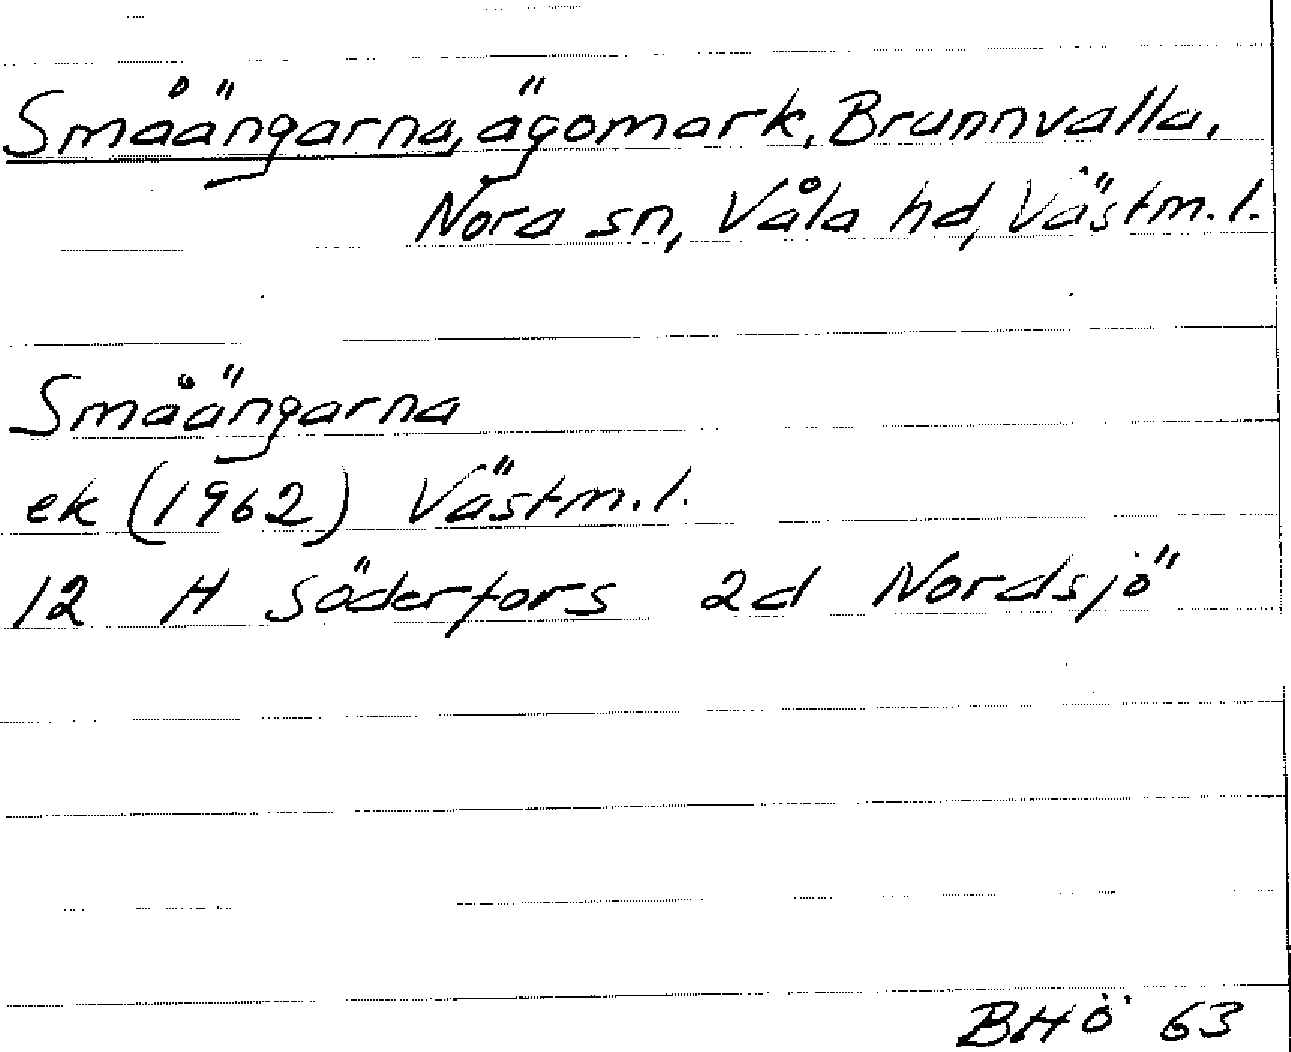 Småängarna, ägomark, Brunnvalla,
Nora sn, Våla hd, Västm. l.
Småängarna
ek (1962) Västm. l.
12 H Söderfors 2d Nordsjö
BHÖ 63